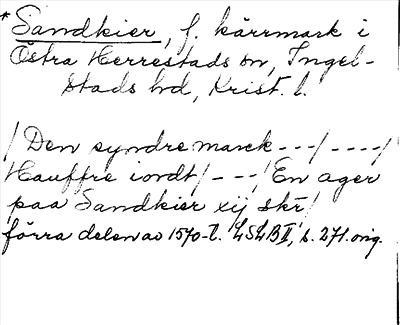 * Sandkier, f. kärrmark i
Östra Herrestads sn, Ingel-
stads hd, Krist. l.
/Den syndre marck ---/----/
Hauffre iordt/---/En ager
paa Sandkier xij skr/
förra delen av 1570-t. LSLB II, s. 271. orig.